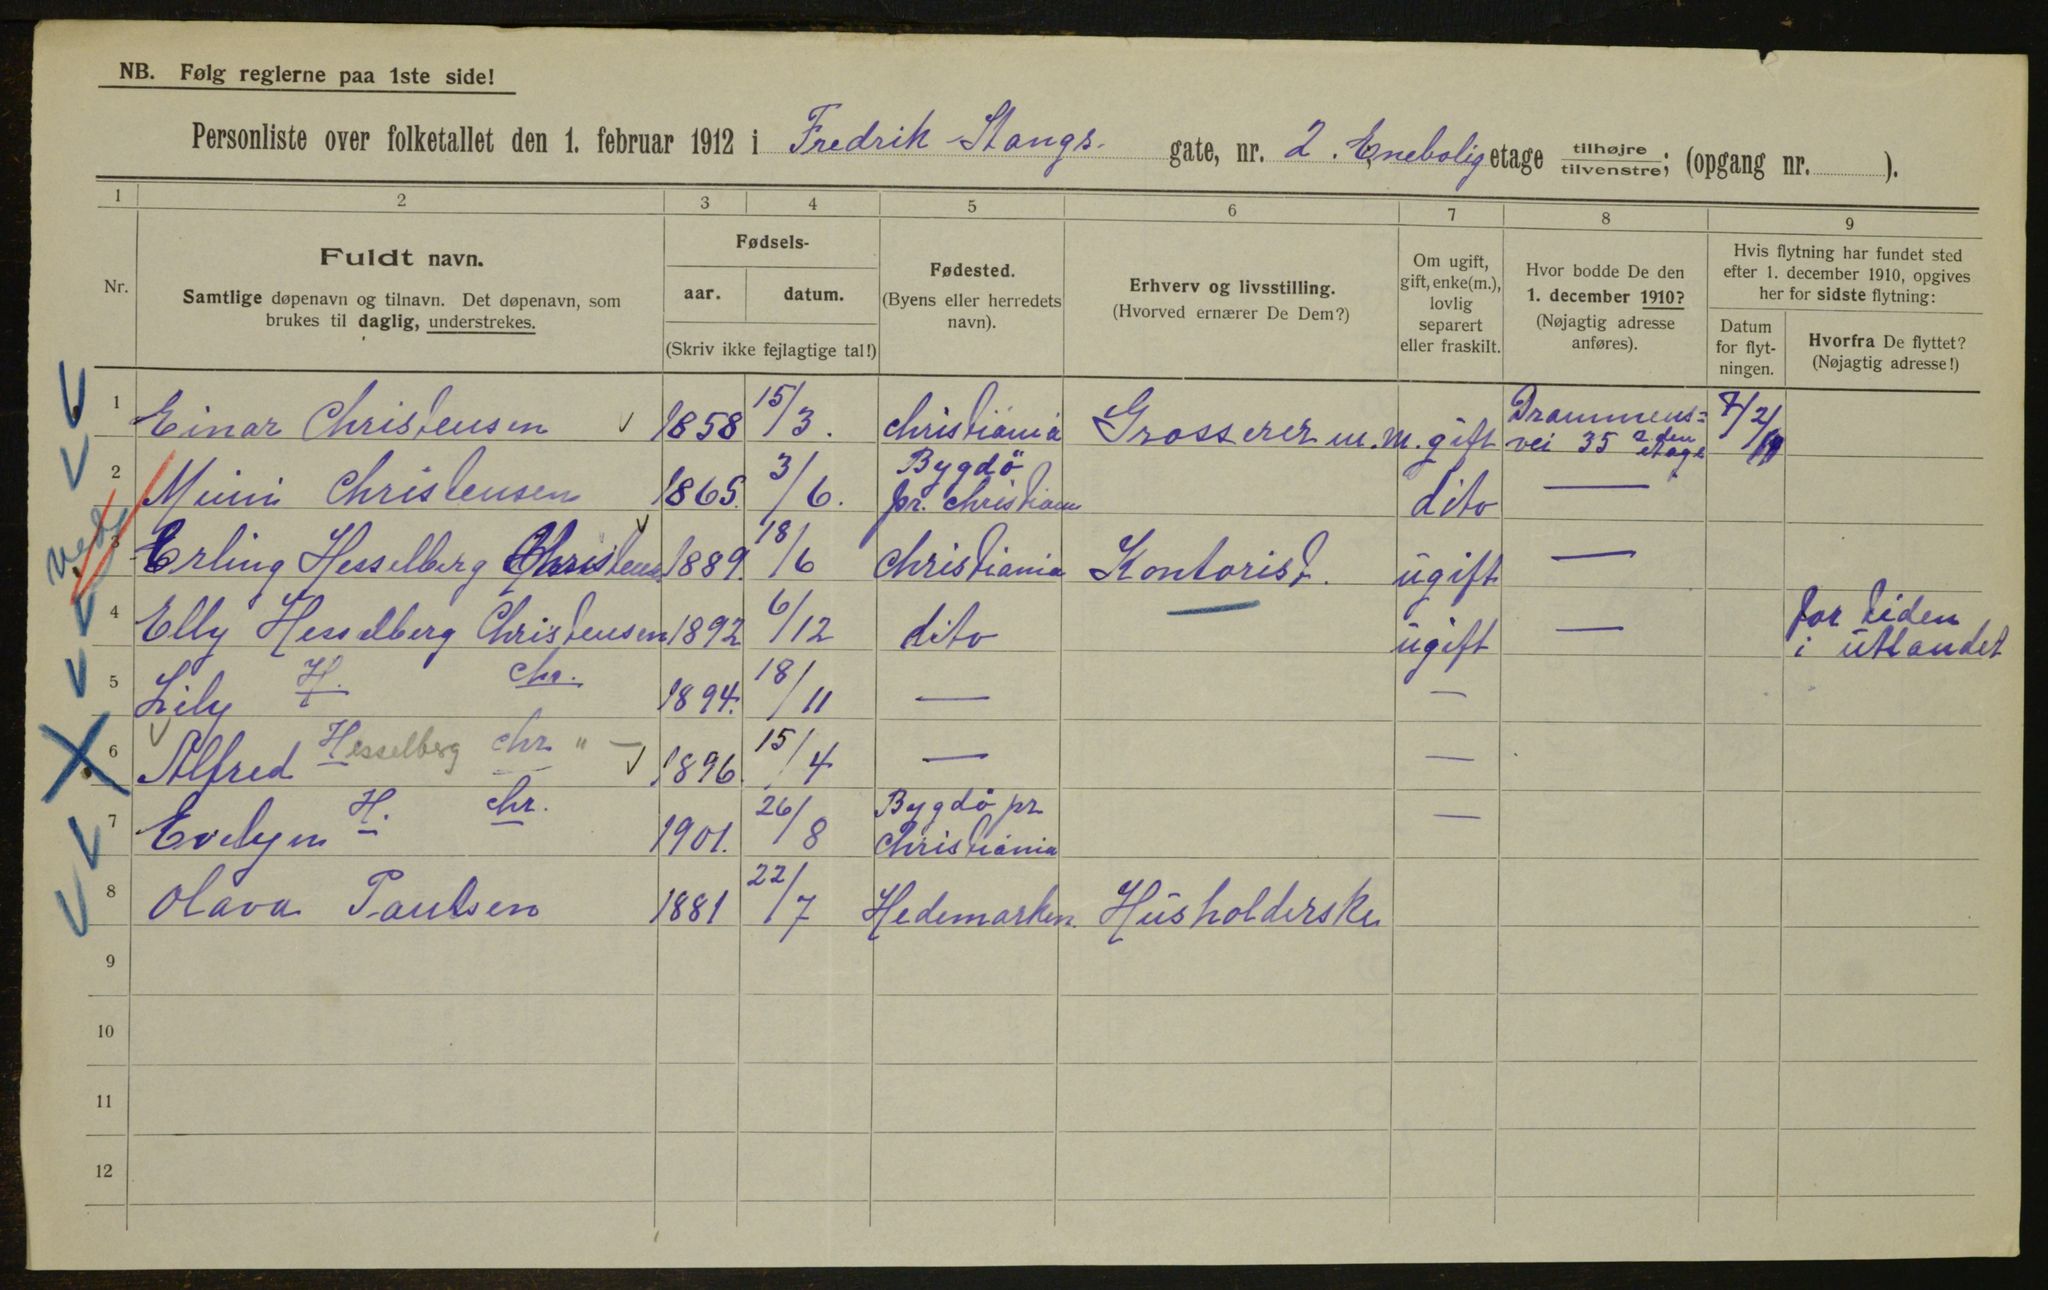 NB. Følg reglerne paa 1ste side!
Personliste over folketallet den 1. februar 1912 i Fredrik Stangs gate, nr. 2. Enebolig etage tilhøjre/tilvenstre; (opgang nr. ).
1 2 3 4 5 6 7 8 9
Nr.
Fuldt navn.
Samtlige døpenavn og tilnavn. Det døpenavn, som
brukes til daglig, understrekes.
Fødsels-
aar. datum.
(Skriv ikke fejlagtige tal!)
Fødested.
(Byens eller herredets
navn).
Erhverv og livsstilling.
(Hvorved ernærer De Dem?)
Om ugift,
gift, enke(m.),
lovlig
separert
eller fraskilt.
Hvor bodde De den
1. december 1910?
(Nøjagtig adresse
anføres).
Hvis flytning har fundet sted
efter 1. december 1910, opgives
her for sidste flytning:
Datum
for flyt-
ningen.
Hvorfra De flyttet?
(Nøjagtig adresse!)
1 Einar Christensen 1858 15/3. Christiania Grosserer m.m. gift Drammens=
vei 35 2den etage 7/2/11
2 Mimi Christensen 1865. 3/6. Bygdö
pr. Christiania dito —
3 Erling Hesselberg Christensen 1889. 18/6 Christiania Kontorist. ugift —
4 Elly Hesselberg Christensen 1892 6/12 dito ugift — for tiden
i utlandet
5 Lily H. Chr. 1894. 18/11 — —
6 Alfred Hesselberg Chr " — 1896. 15/4 — —
7 Evelyn H. Chr. 1901. 26/8 Bygdö pr
Christiania —
8 Olava Paulsen 1881 22/7 Hedemarken. Husholderske
9
10
11
12